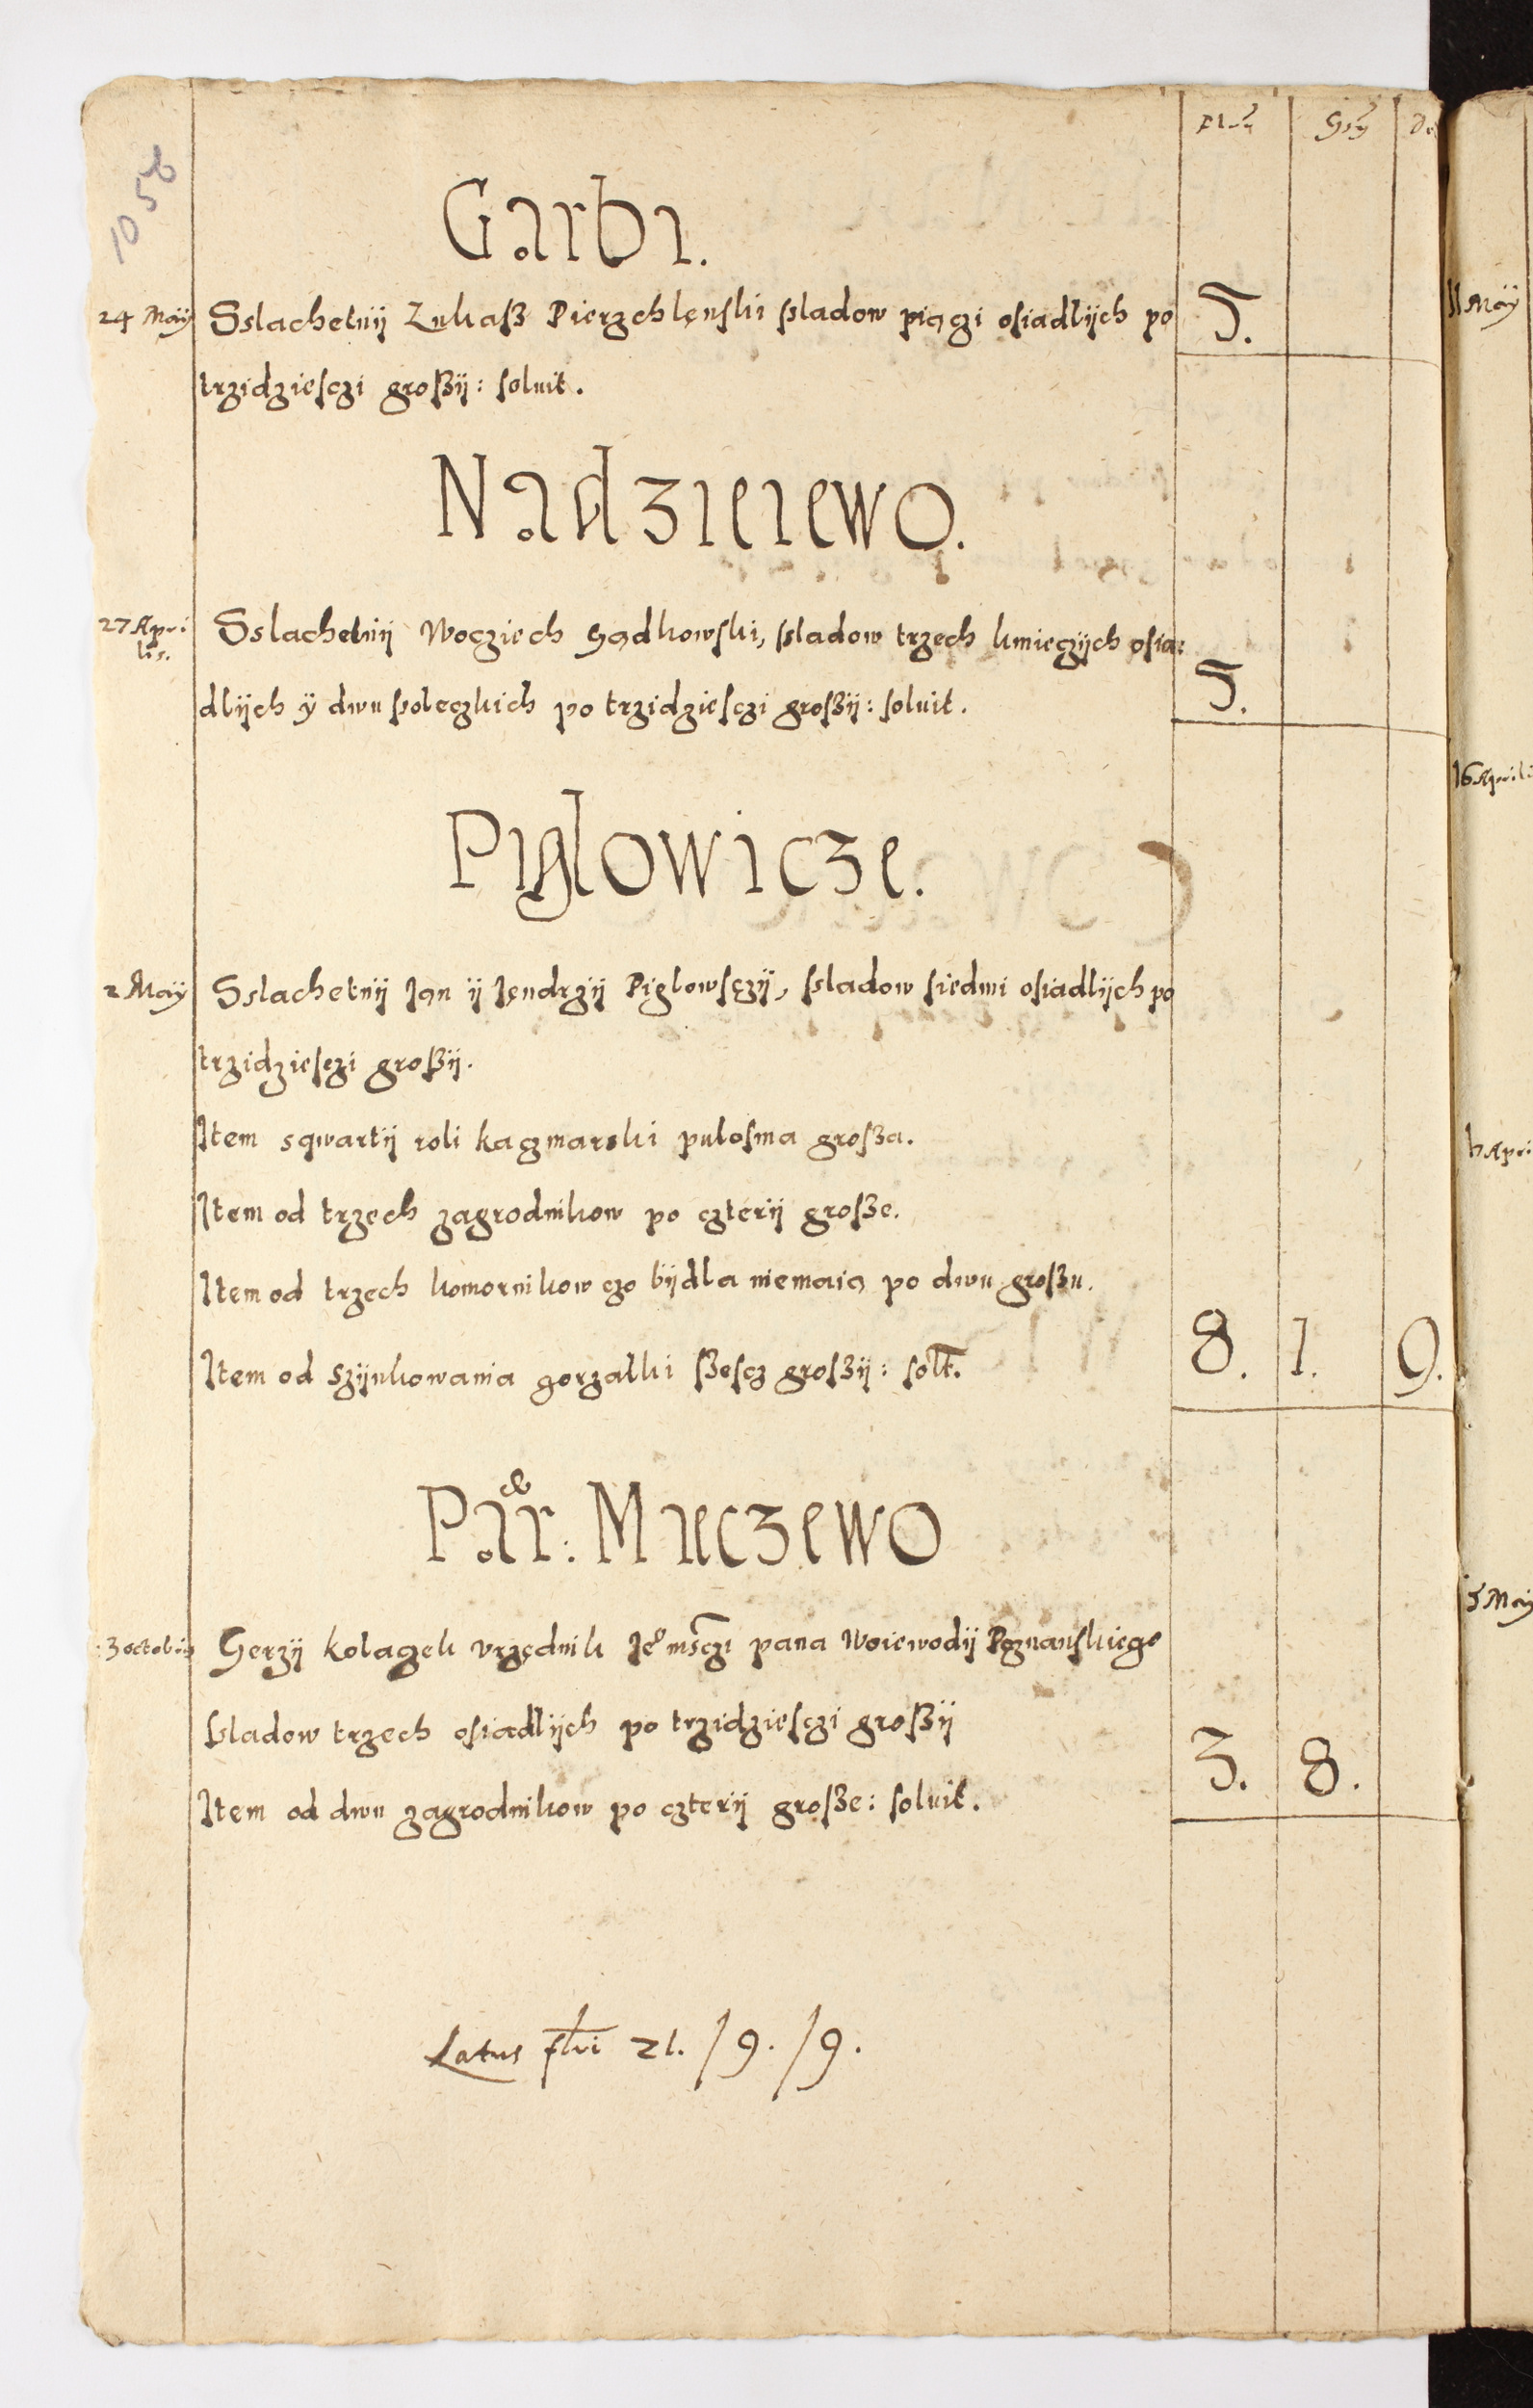 Flor Gros De
1056
Garbi.
24 Maÿ Sslachetnÿ Lukasz Pierzchlęnski sladow piączi osiadlÿch po 5.
trzidziesczi groszÿ: soluit.
Nadzieiewo.
27 Apri
lis. Sslachetnÿ Wocziech Sądkowski, sladow trzech kmieczÿch osia:
dlÿch ÿ dwu poleczkich po trzidziesczi groszÿ: soluit. 5.
Piglowicze.
2 Maÿ Sslachetnÿ Jan ÿ Jęndrzÿ Piglowsczÿ, sladow siedmi osiadlÿch po
trzidziesczi groszÿ.
Item sqwartÿ roli kaczmarski pulosma grosza.
Item od trzech zagrodnikow po czterÿ grosze.
Item od trzech komornikow czo bÿdla niemaią po dwu groszu.
Item od szÿnkowania gorzalki szescz groszÿ: solt. 8. 1. 9.
Par: Mieczewo
3 octobris Gerzÿ Kolaczek vrzędnik Je° msczi pana Woiewodÿ Poznanskiego
sladow trzech osiadlÿch po trzidziesczi groszÿ
Item od dwu zagrodnikow po czterÿ grosze: soluit. 3. 8.
Latus flui 21. / 9. / 9.
11 Maÿ
16 Aprili
Apri
5 Maÿ